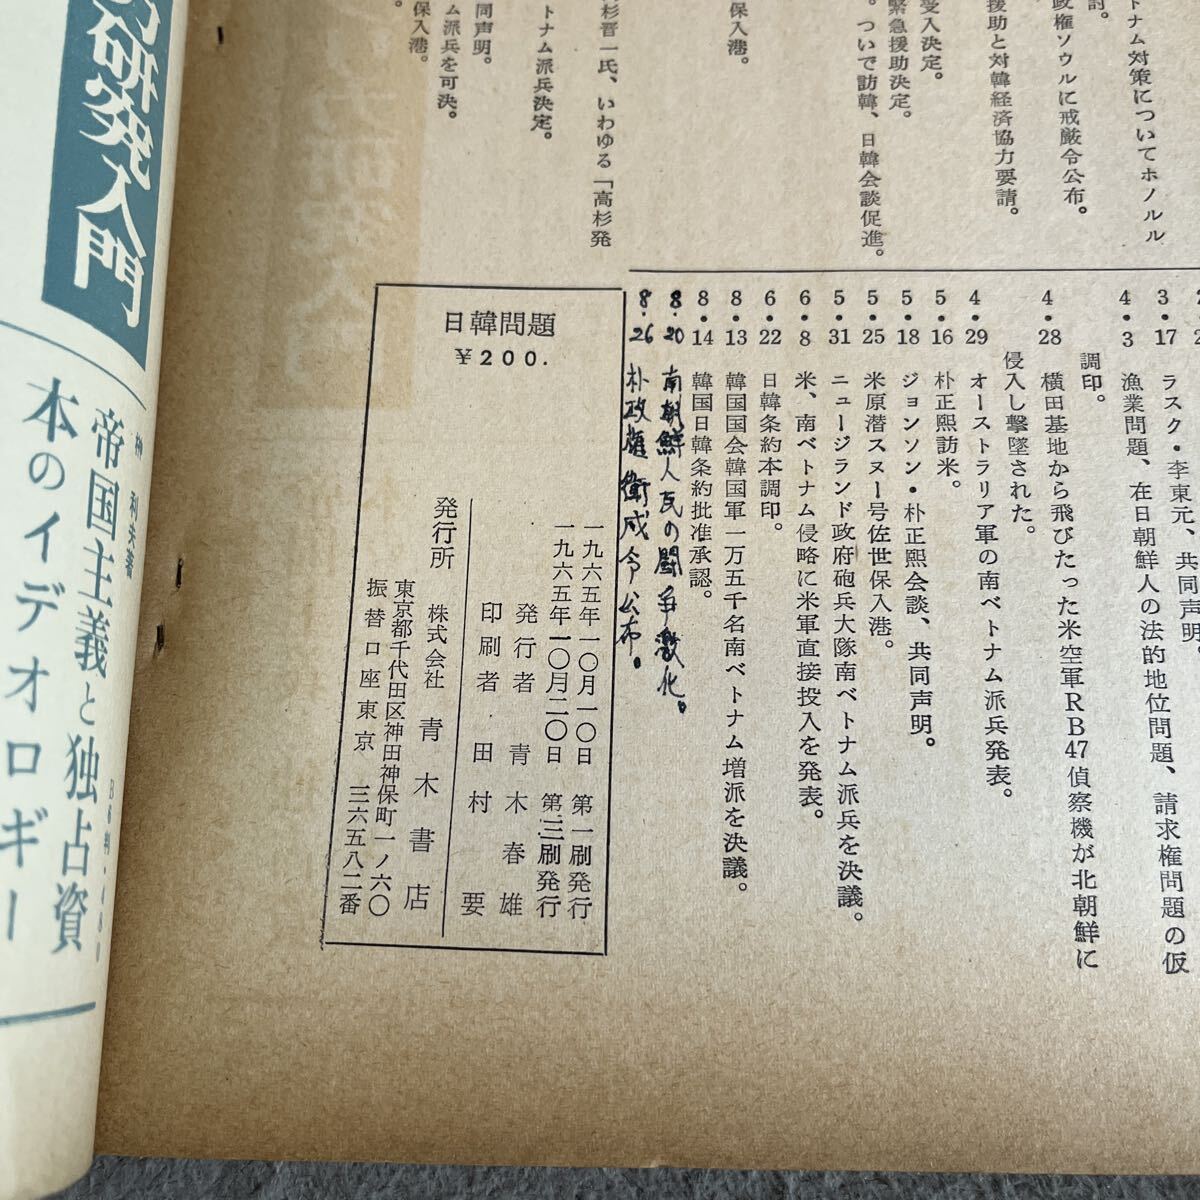 トナム対策についてホノルル
討。
政権ソウルに戒厳令公布。
援助と対韓経済協力要請。
受入決定。
緊急援助決定。
。ついで訪韓、日韓会談促進。
保入港。
高杉晋一氏、いわゆる「高杉発
トナム派兵決定。
共同声明。
ム派兵を可決。
保入港。
3・17 ラスク・李東元、共同声明。
4・3 漁業問題、在日朝鮮人の法的地位問題、請求権問題の仮
調印。
4・28 横田基地から飛びたった米空軍RB47偵察機が北朝鮮に
侵入し撃墜された。
4・29 オーストラリア軍の南ベトナム派兵発表。
5・16 朴正熙訪米。
5・18 ジョンソン・朴正熙会談、共同声明。
5・25 米原潜スヌー号佐世保入港。
5・31 ニュージランド政府砲兵大隊南ベトナム派兵を決議。
6・8 米、南ベトナム侵略に米軍直接投入を発表。
6・22 日韓条約本調印。
8・13 韓国国会韓国軍一万五千名南ベトナム増派を決議。
8・14 韓国日韓条約批准承認。
8・20 南朝鮮人民の闘争激化。
8・26 朴政権衛戍令公布。
日韓問題
￥200.
一九六五年一〇月一〇日 第一刷発行
一九六五年一〇月二〇日 第三刷発行
発行者 青木春雄
印刷者 田村要
発行所 株式会社 青木書店
東京都千代田区神田神保町一ノ六〇
振替口座東京 三六五八二番
研発入門
利夫著
帝国主義と独占資
本のイデオロギー
B6判・480